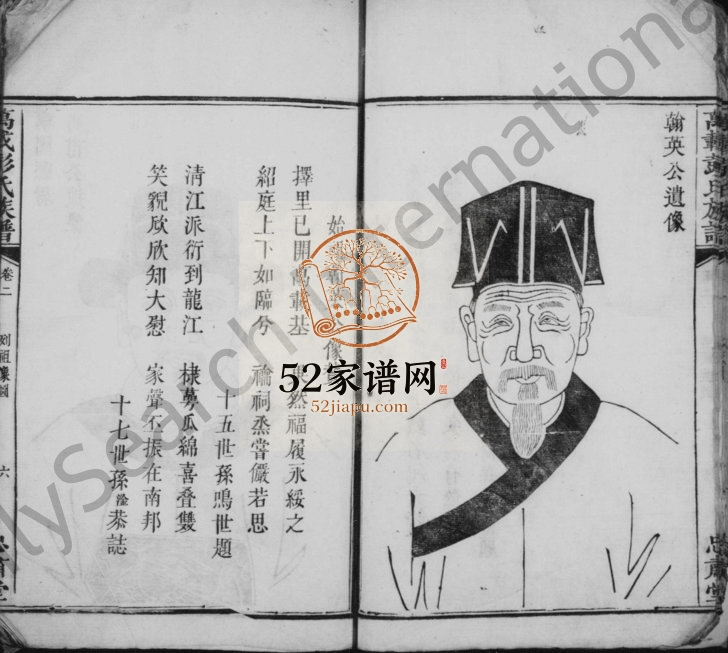 萬載彭氏族譜
忠肅堂
翰英公遺像
擇里已開萬載基 然福履永綏之
紹庭上下如臨兮 禴祠烝嘗儼若思
十五世孫鳴世題
清江派衍到龍江 棣萼瓜綿喜叠雙
笑貌欣欣知大慰 家聲丕振在南邦
十七世孫 恭誌
萬載彭氏族譜
卷二
列祖像圖
六
忠肅堂
52家谱网
52jiapu.com
lySearch International